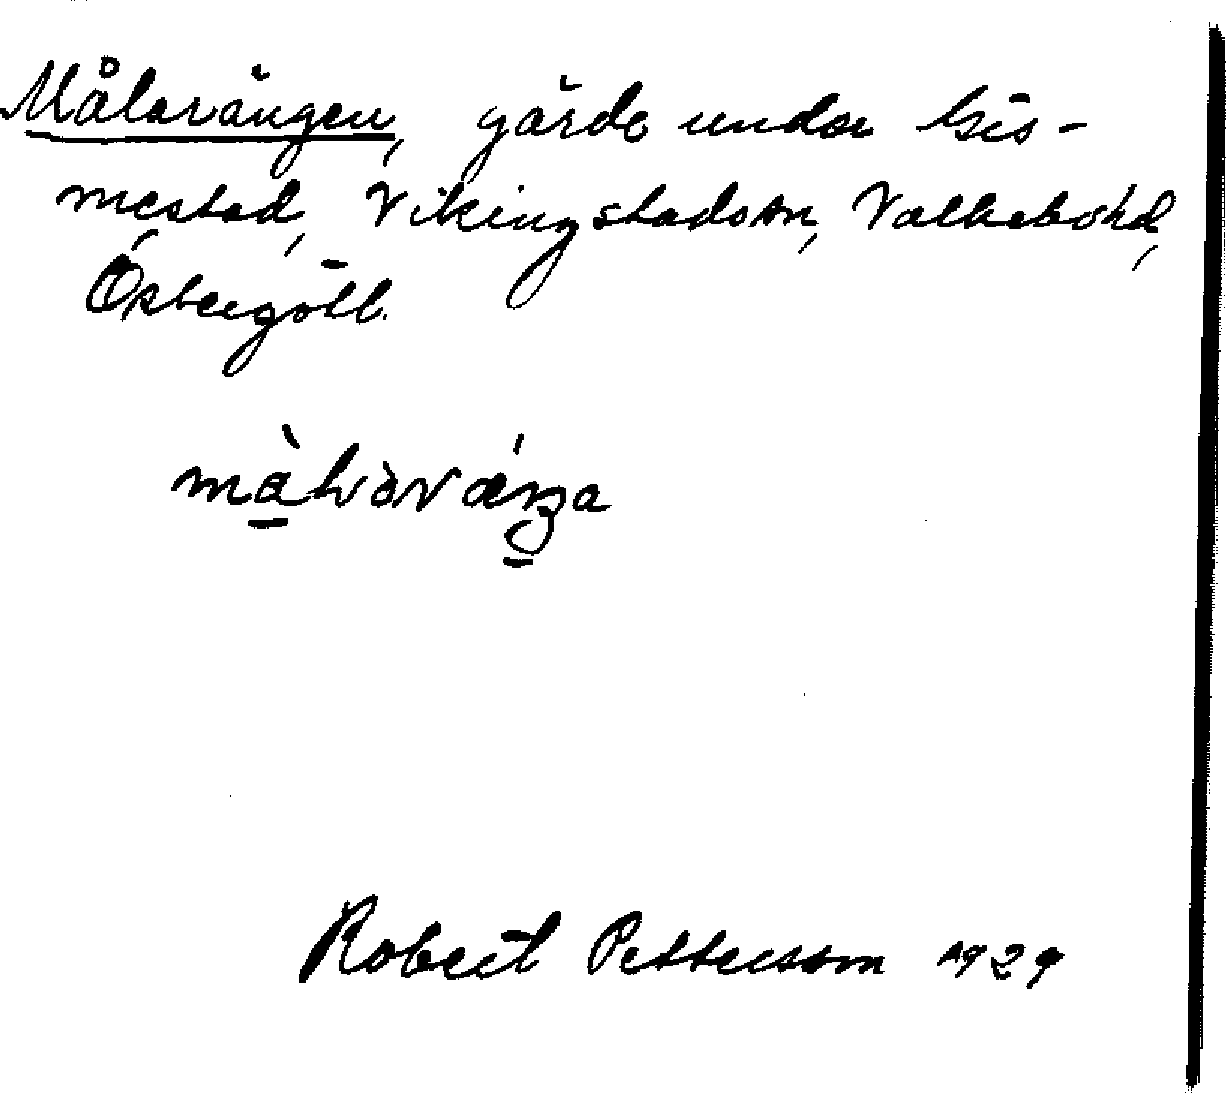 Målarängen, gärde under Gis-
mestad, Vikingstads sn, Valkebo hd,
Östergötl.
Robert Pettersson 1929